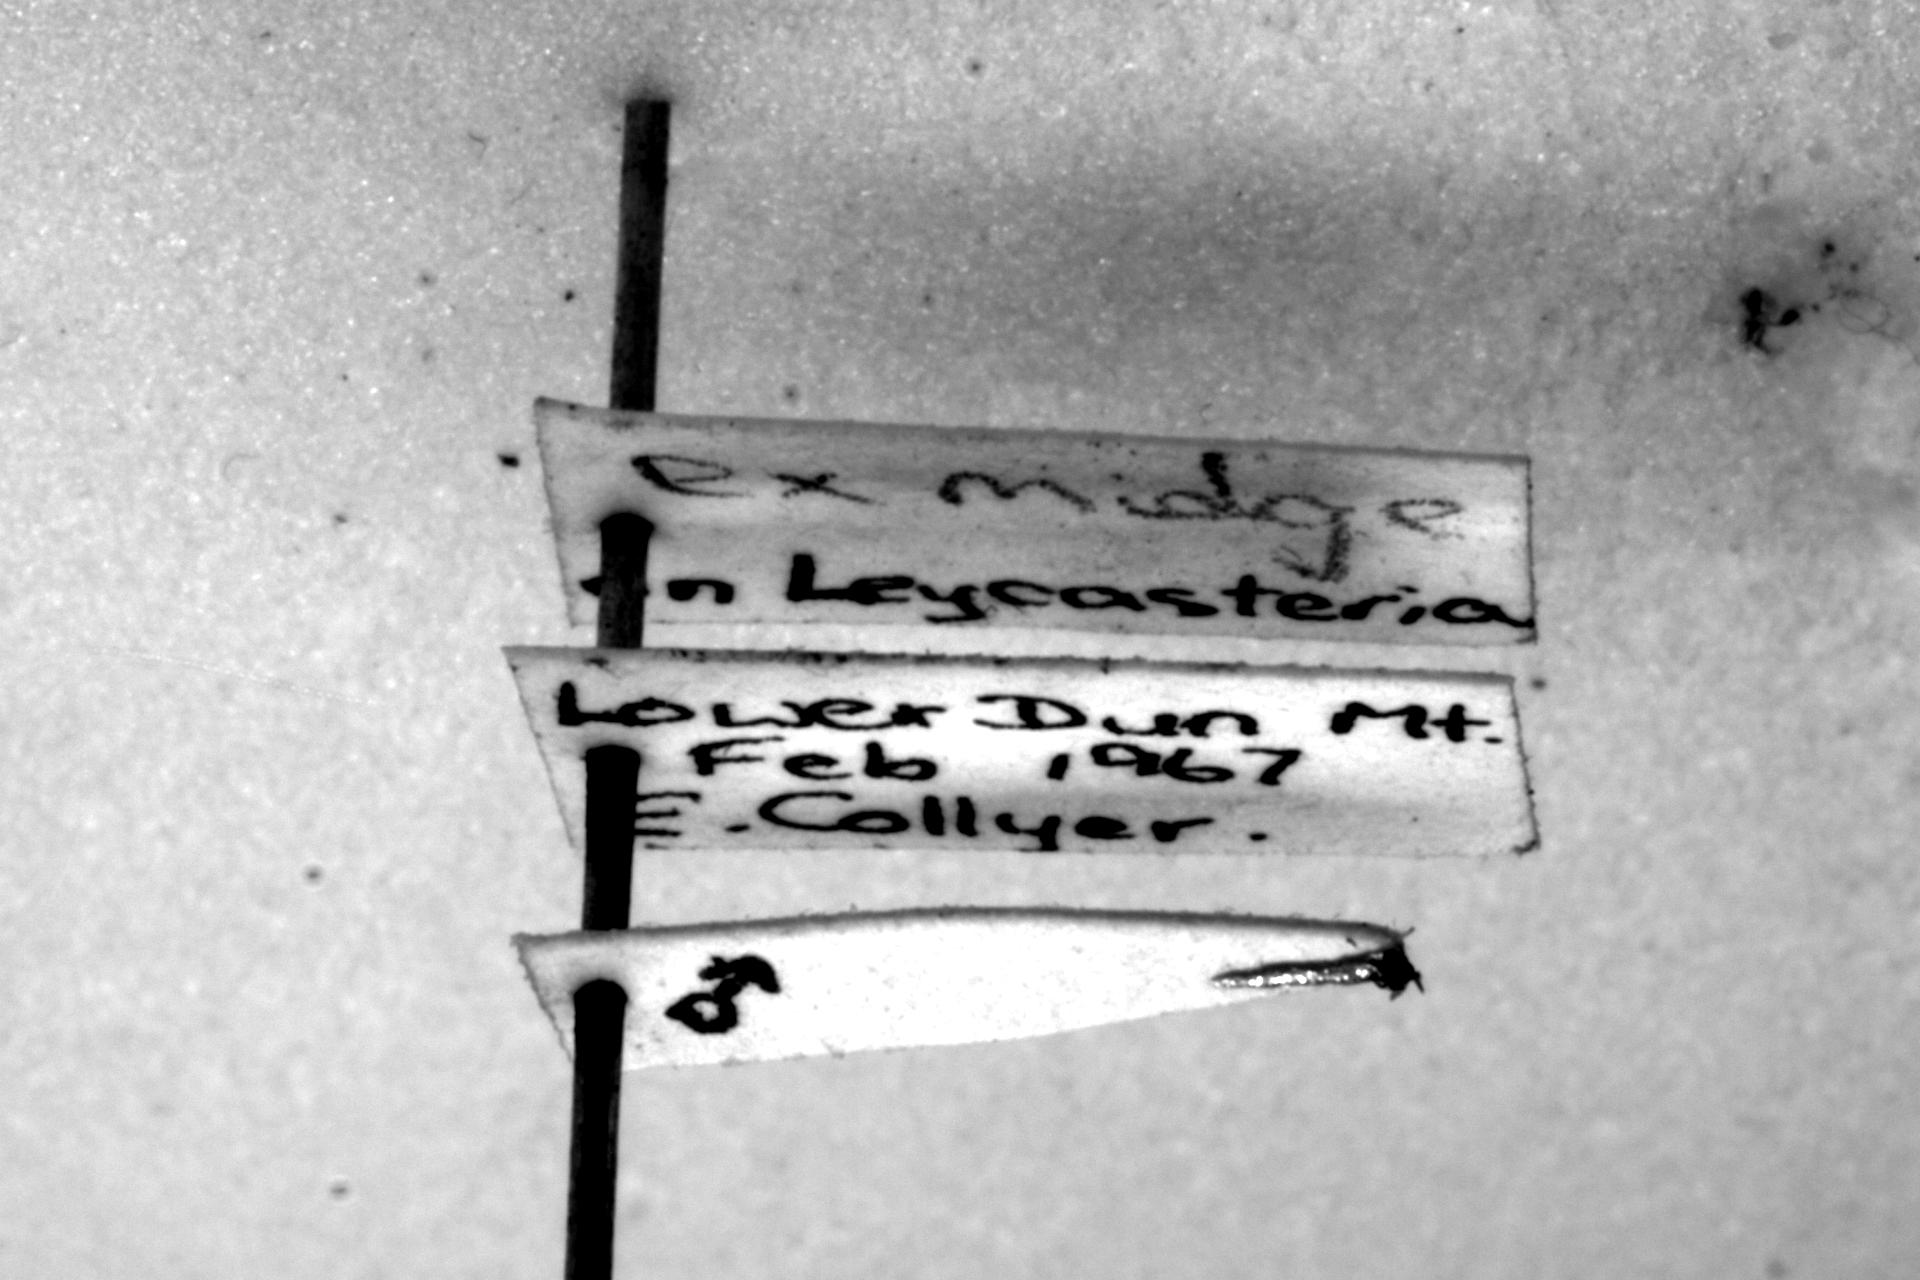 ex midge
on Leycasteria
Lower Dun Mt.
Feb 1967
E. Collyer.
♂